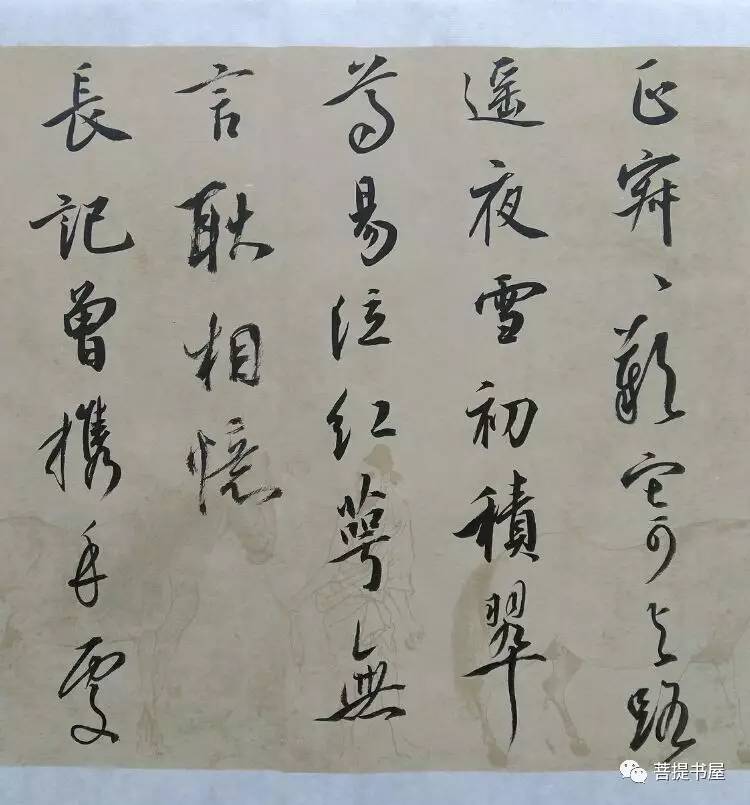 正寂々歎寄与路
遥夜雪初積翠
尊易泣紅萼無
言耿相憶
長記曾携手處
菩提书屋